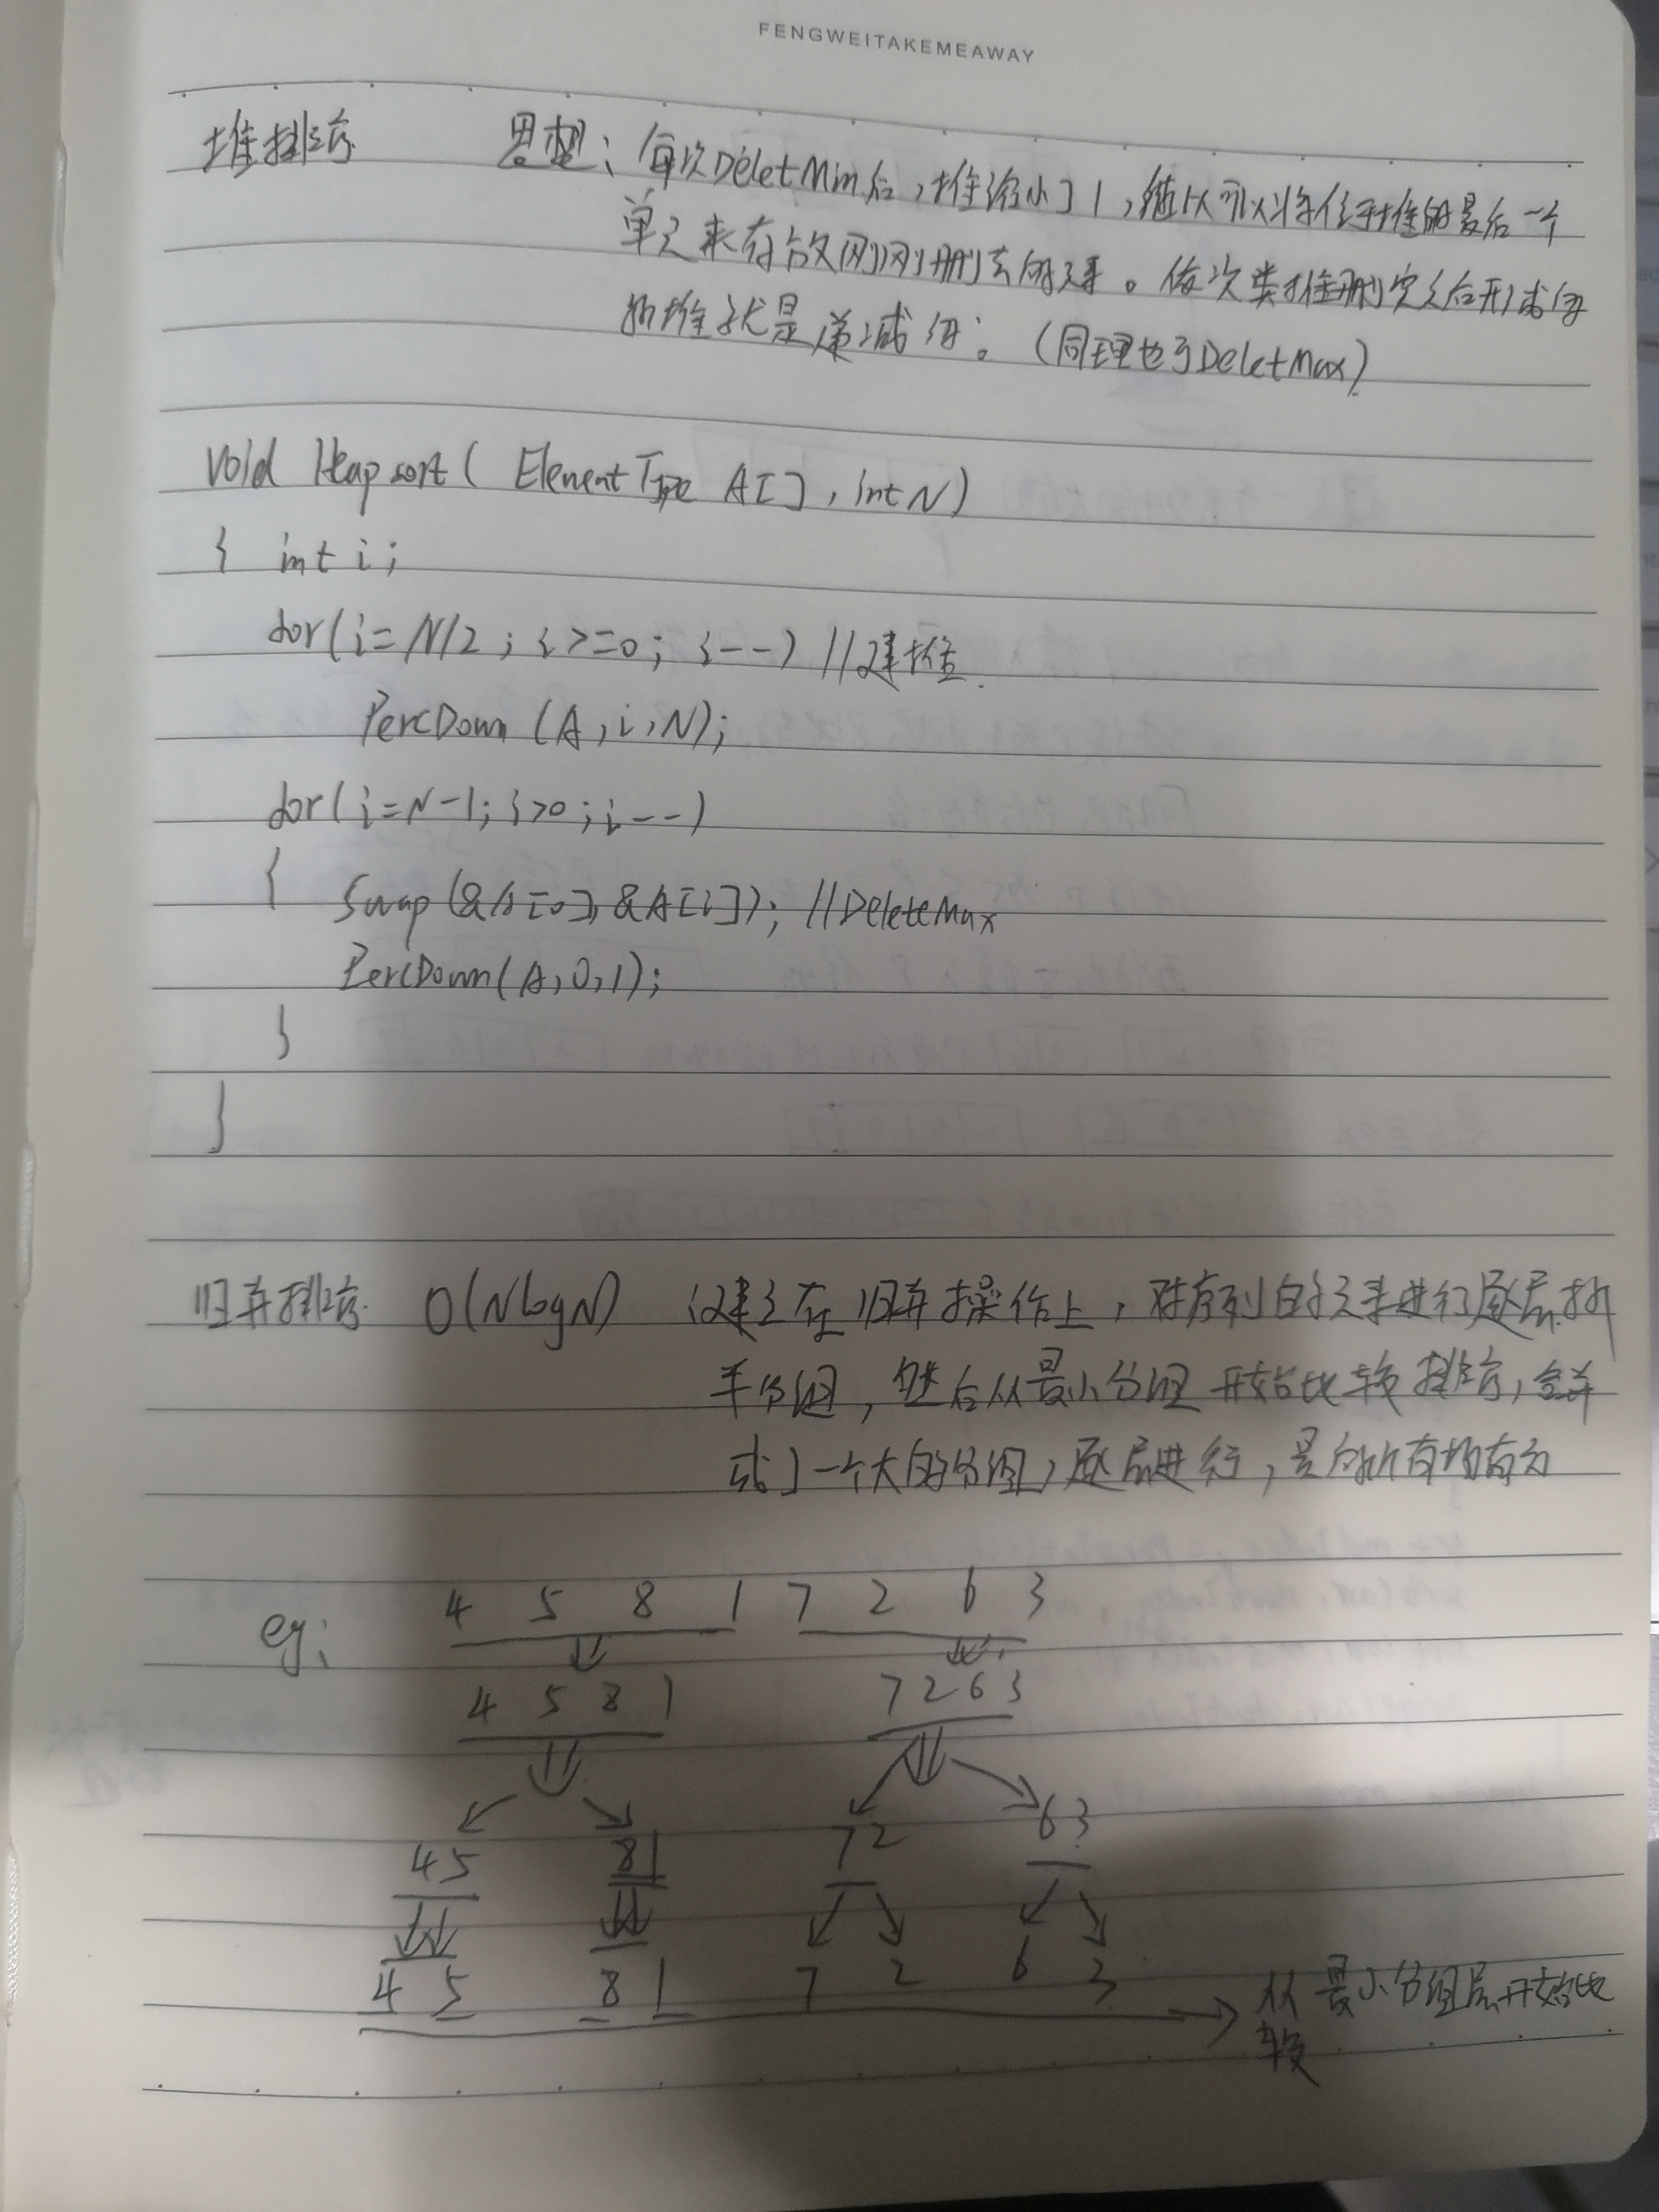 FENGWEITAKEMEAWAY
堆排序 思想：每次DeletMin后，堆缩小了1，所以可以将位于堆的最后一个
单元来存放刚刚删去的元素。依次类推删完之后形成的
新堆就是递减的。（同理也可DeletMax）
void Heapsort( ElementType A[], int N)
{ int i;
for(i=N/2; i>=0; i--) //建堆.
PercDown (A, i, N);
for(i=N-1; i>0; i--)
{ Swap(&A[0], &A[i]); //DeleteMax
PercDown(A, 0, 1);
}
}
归并排序 O(NlogN) 建立在归并操作上，对序列的元素进行逐层折
半分组，然后从最小分组开始比较排序，合并
成]一个大的分组，逐层进行，最终所有均有序
eg: 4 5 8 1 7 2 6 3
4 5 8 1 7 2 6 3
4 5 8 1 7 2 6 3
4 5 8 1 7 2 6 3 从最小分组层开始比
较